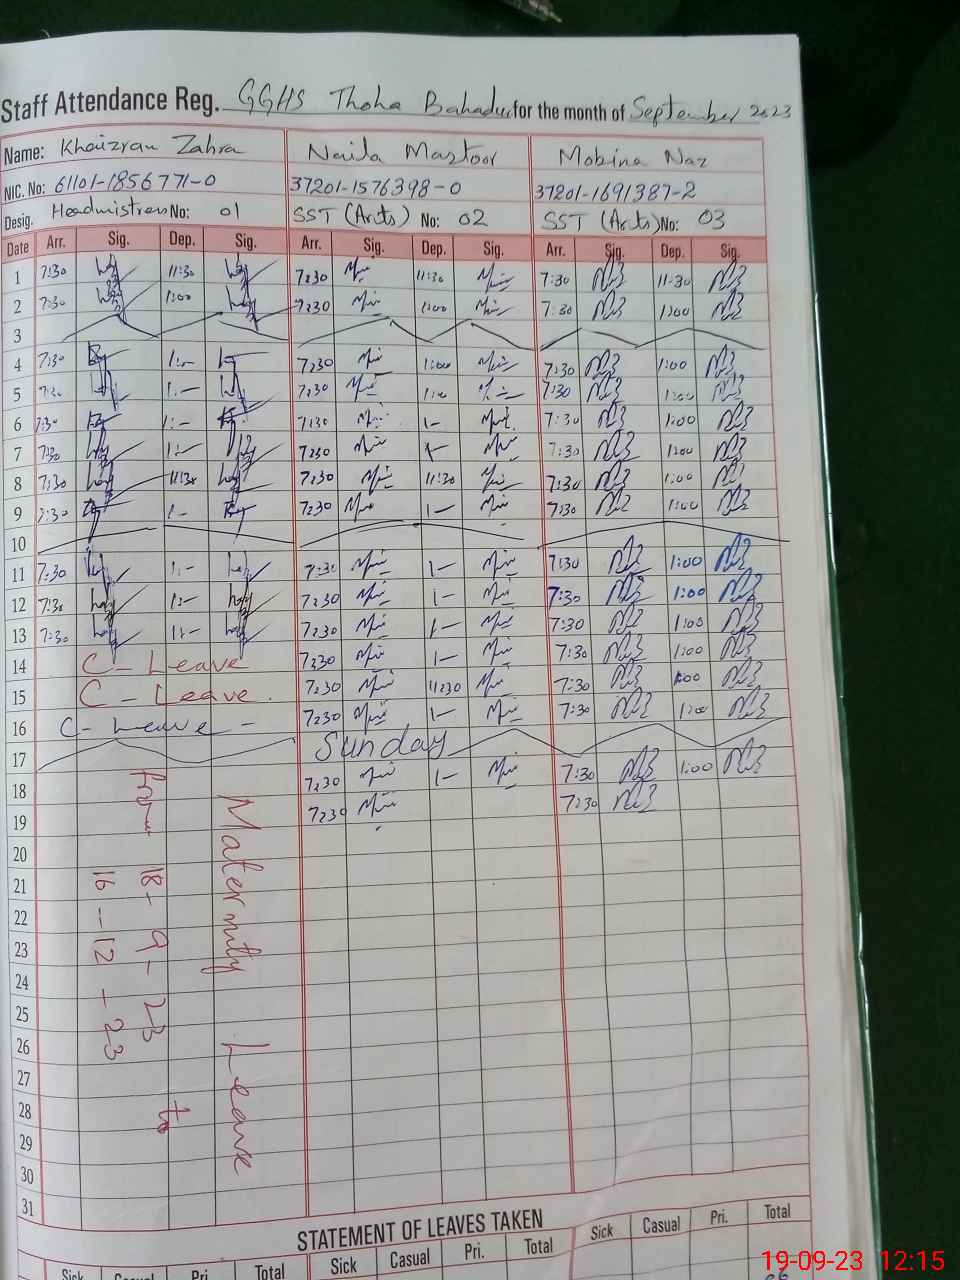 Staff Attendance Reg. GGHS Thoha Bahadur for the month of September 2023
Name: Khaizran Zahra Naila Mastoor Mobina Naz
NIC. No: 61101-1856771-0 37201-1576398-0 37201-1691387-2
Desig. Headmistress No: 01 SST (Arts) No: 02 SST (Arts) No: 03
Date Arr. Sig. Dep. Sig. Arr. Sig. Dep. Sig. Arr. Sig. Dep. Sig.
1 7:30 11:30 7:30 11:30 7:30 11:30
2 7:30 1:00 7:30 1:00 7:30 1:00
3
4 7:30 1:- 7:30 1:00 7:30 1:00
5 7:30 1:- 7:30 1:00 7:30 1:00
6 7:30 1:- 7:30 1- 7:30 1:00
7 7:30 1:- 7:30 1- 7:30 1:00
8 7:30 11:30 7:30 11:30 7:30 1:00
9 7:30 1- 7:30 1- 7:30 1:00
10
11 7:30 1:- 7:30 1- 7:30 1:00
12 7:30 1:- 7:30 1- 7:30 1:00
13 7:30 1:- 7:30 1- 7:30 1:00
14 C-Leave 7:30 1- 7:30 1:00
15 C-Leave. 7:30 11:30 7:30 1:00
16 C-Leave - 7:30 1- 7:30 1:00
17 Sunday
18 7:30 1- 7:30 1:00
19 7:30 7:30
20
21
22
23
24
25
26
27
28
29
30
31
Maternity Leave
from 18-9-23 to
16-12-23
STATEMENT OF LEAVES TAKEN
Sick Casual Pri. Total Sick Casual Pri. Total Sick Casual Pri. Total
19-09-23 12:15